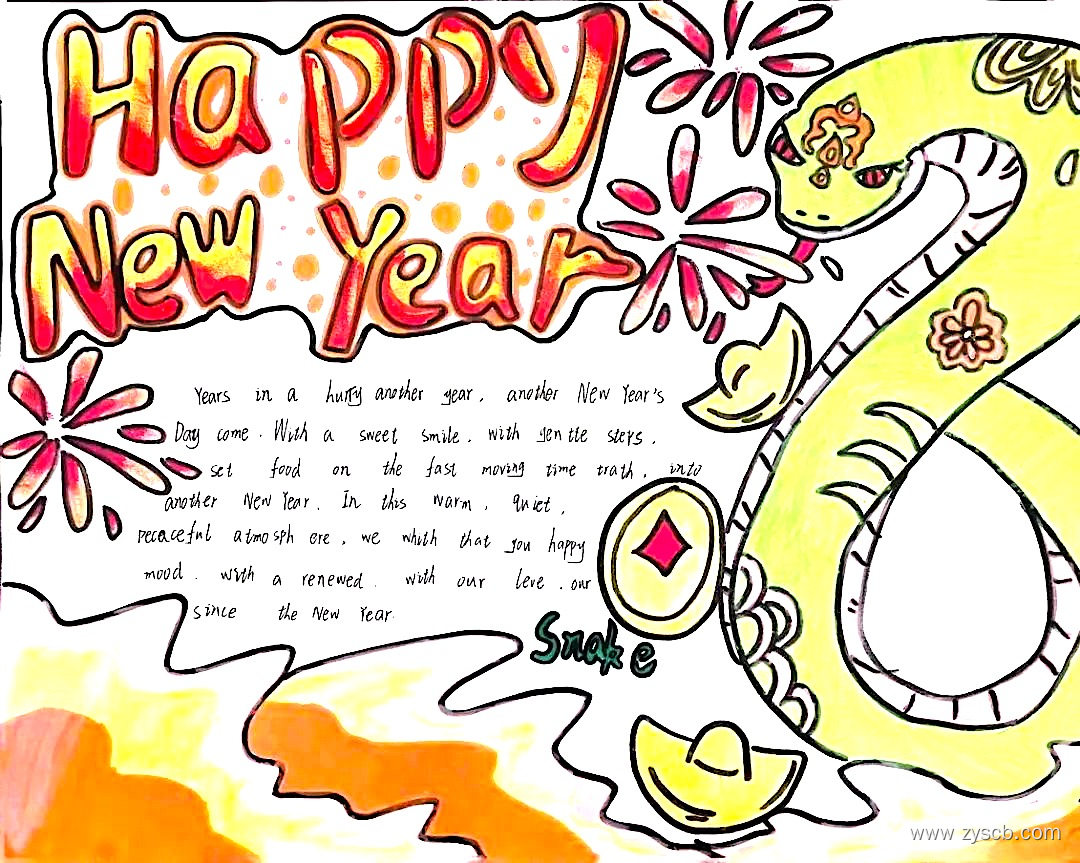 Happy
New Year
Years in a hurry another year, another New Year's
Day come. With a sweet smile, with gentle steps,
set food on the fast moving time trath, into
another New Year. In this warm, quiet,
pecaceful atmosph ere, we whith that you happy
mood. with a renewed. with our leve. our
since the New Year.
Snake
www.zyscb.com